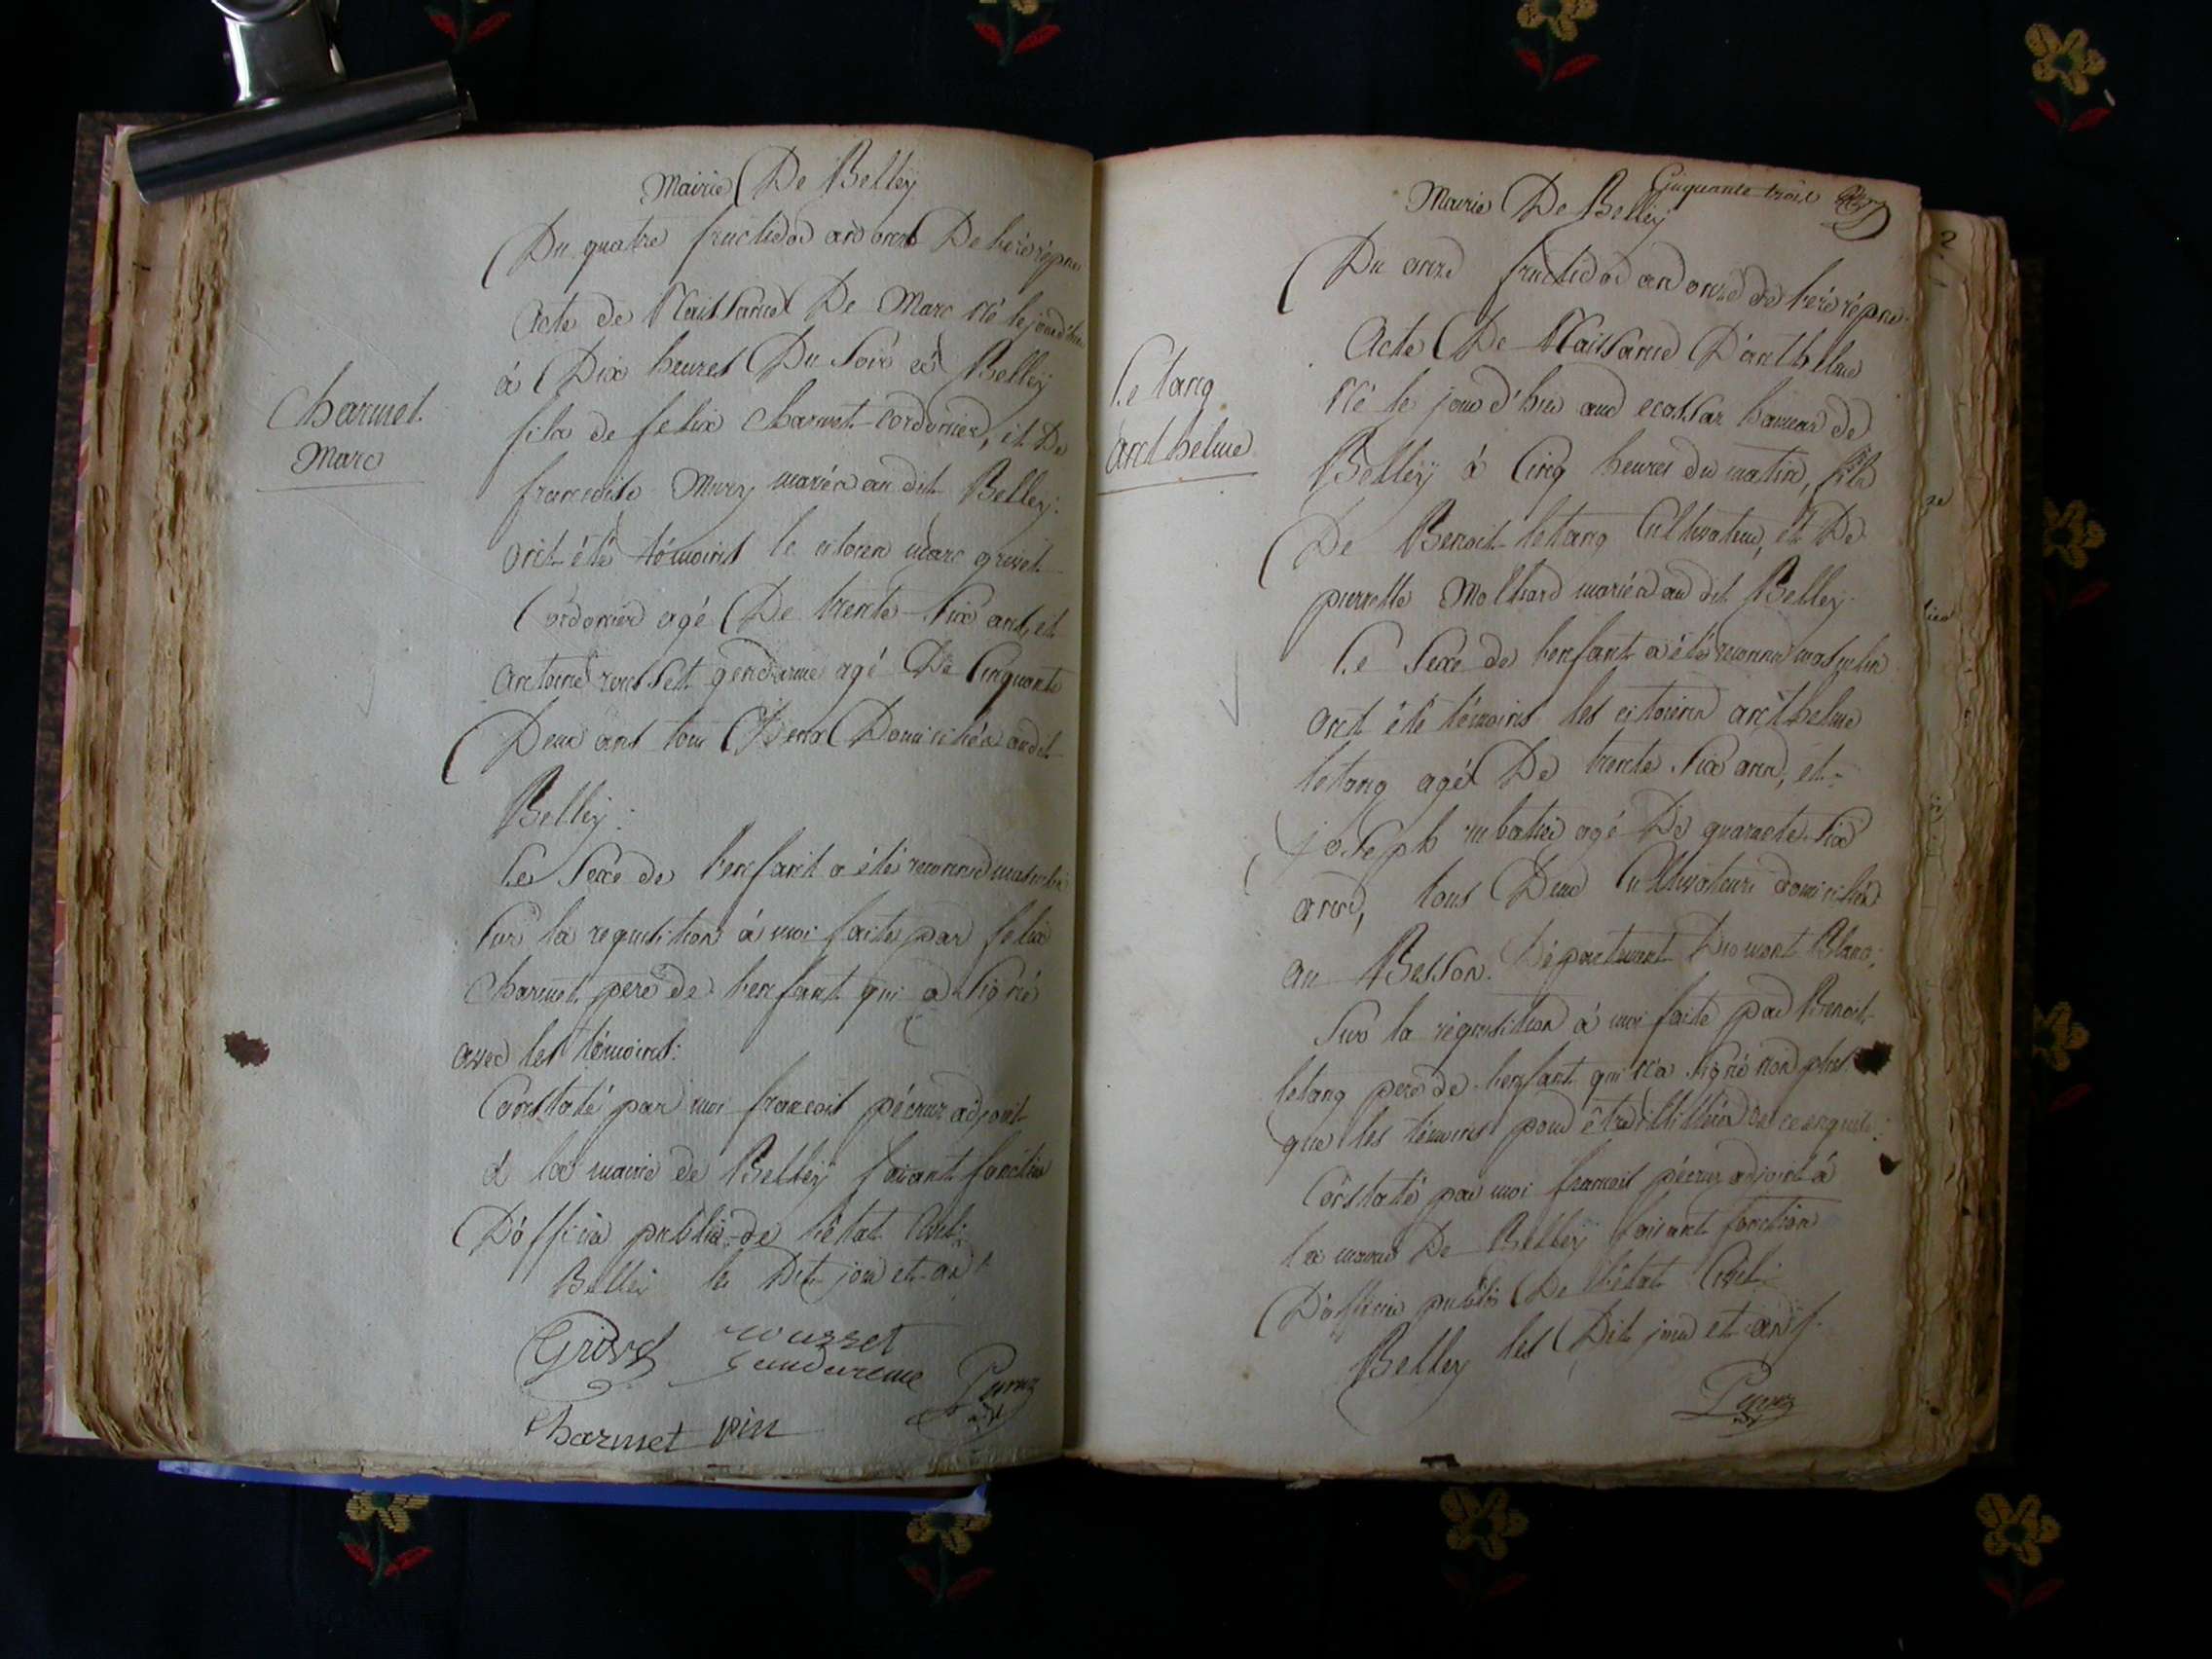 Mairie De Belley
Du quatre fructidor an onze De l'ere répne
Acte de Naissance De Marc Né le jour d'hier
à Dix heures Du Soir à Belley
fils de felix Charvet cordonier, et De
francoise Mury mariés au dit Belley.
Charvet
Marc
ont été témoins le citoien marc grivet
Cordonier agé De trente Six ans, et
antoine rousset gendarme agé De Cinquante
Deux ans tous Deux Domiciliés au dit
Belley.
Le Sexe de l'enfant a été reconnu masculin
Sur la requisition à moi faite par felix
Charvet pere de l'enfant qui a Signé
avec les témoins:
Constaté par moi francois pécruz adjoint
à la mairie de Belley faisant fonction
D'officier public de l'état Civil.
Belley les Dit jour et an
Grivet rousset
Gendareme
Charvet
Mairie De Belley
Cinquante trois
Du onze fructidor an onze de l'ére répne
Acte De Naissance D'anthelme
Né le jour d'hier aux ecassaz hameau de
Belley à Cinq heures du matin, fils
De Benoit letang Cultivateur, et De
pierrette Molliard mariés au dit Belley.
Le Sexe de l'enfant a été reconnu masculin
Letang
anthelme
ont été témoins les citoiens anthelme
letang agé De trente Six ans, et
joseph rubatier agé De quarante Six
ans, tous Deux Cultivateurs domiciliés
au Département Du mont Blanc;
Sur la réquisition à moi faite par Benoit
letang pere de l'enfant qui n'a Signé non plus
que les témoins pour être illitérés de ce enquis.
Constaté par moi francois pécruz adjoint à
la mairie De Belley faisant fonction
D'officier public De l'état Civil.
Belley les Dit jour et an